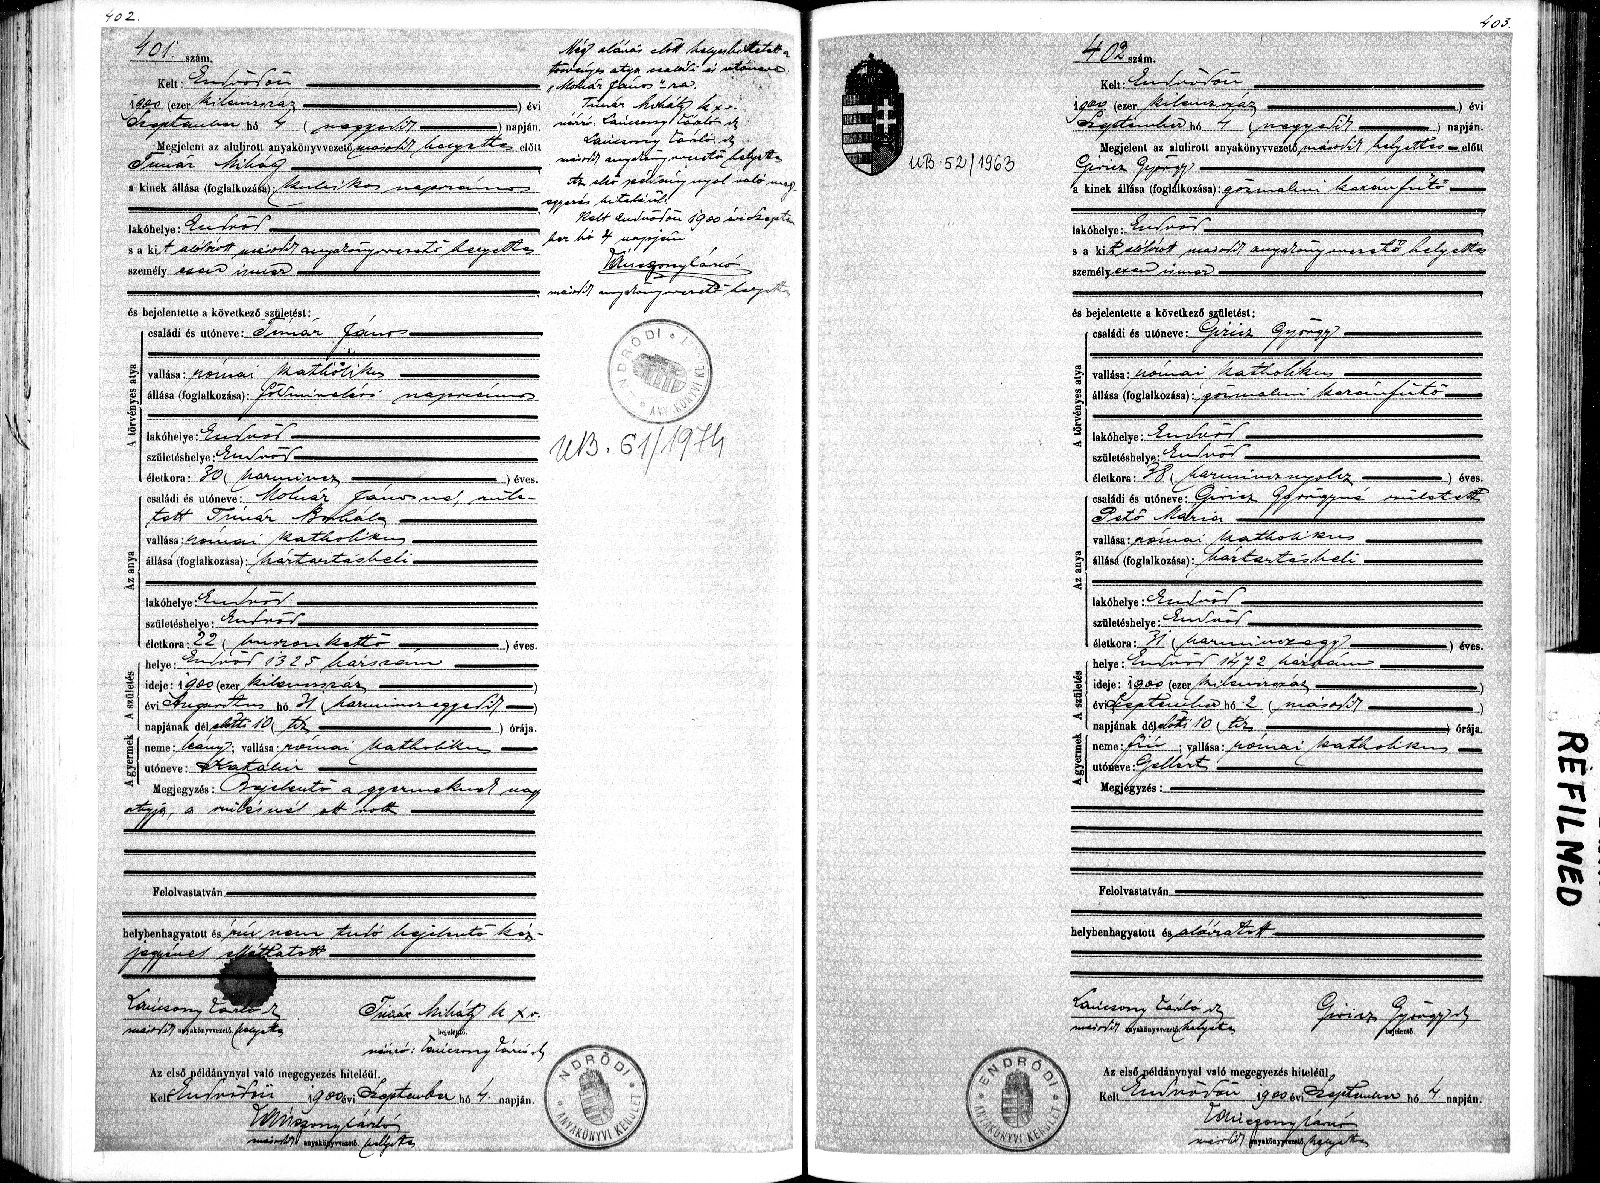 402.
401. szám.
Kelt: Endrődön
1900 (ezer kilenczszáz) évi
Szeptember hó 4 (negyedik) napján.
Megjelent az alulirott anyakönyvvezető második helyettes előtt
Timár Mihály
a kinek állása (foglalkozása): kubikos napszámos
lakóhelye: Endrőd
s a kit alólirott második anyakönyvvezető helyettes
személyesen ismer
és bejelentette a következő születést:
A törvényes atya
családi és utóneve: Timár János
vallása: római katholikus
állása (foglalkozása): földmivelési napszámos
lakóhelye: Endrőd
születéshelye: Endrőd
életkora: 30 (harmincz) éves.
Az anya
családi és utóneve: Molnár Jánosné, szüle-
tett Timár Borbála
vallása: római katholikus
állása (foglalkozása): háztartásbeli
lakóhelye: Endrőd
születéshelye: Endrőd
életkora: 22 (huszonkettő) éves.
A születés
helye: Endrőd 1325 házszám
ideje: 1900 (ezer kilenczszáz)
évi Augusztus hó 31 (harminczegyedik)
napjának délelőtti 10 (tíz) órája.
A gyermek
neme: leány; vallása: római katholikus
utóneve: Katalin
Megjegyzés: Bejelentő a gyermeknek nagy
atyja, a szülésnél ott volt
Felolvastatván
helybenhagyatott és írni nem tudó bejelentő kéz-
jegyével elláttatott
Laucsony Károly
második anyakönyvvezető helyettes
Timár Mihály k x v.
bejelentő.
névíró: Laucsony Károly
Az első példánynyal való megegyezés hiteléül.
Kelt Endrődön 1900 évi Szeptember hó 4. napján.
második anyakönyvvezető helyettes
Még aláírás előtt helyesbittetett a
törvényes atya családi és utóneve
„Molnár János”-ra.
Timár Mihály k x v.
névíró: Laucsony Károly
Laucsony Károly
második anyakönyvvezető helyettes
Az első példánynyal való meg-
egyezés hiteléül.
Kelt Endrődön 1900 évi Szeptem
ber hó 4 napján
második anyakönyvvezető helyettes
ENDRŐDI ANYAKÖNYVI KERÜLET
UB. 61/1974
ENDRŐDI ANYAKÖNYVI KERÜLET
403.
UB 52/1963
402 szám.
Kelt: Endrődön
1900 (ezer kilenczszáz) évi
Szeptember hó 4 (negyedik) napján.
Megjelent az alulirott anyakönyvvezető második helyettes előtt
Giricz György
a kinek állása (foglalkozása): gőzmalmi kazánfűtő
lakóhelye: Endrőd
s a kit alólirott második anyakönyvvezető helyettes
személyesen ismer
és bejelentette a következő születést:
A törvényes atya
családi és utóneve: Giricz György
vallása: római katholikus
állása (foglalkozása): gőzmalmi kazánfűtő
lakóhelye: Endrőd
születéshelye: Endrőd
életkora: 38 (harmincznyolcz) éves.
Az anya
családi és utóneve: Giricz Györgyné született
Pető Mária
vallása: római katholikus
állása (foglalkozása): háztartásbeli
lakóhelye: Endrőd
születéshelye: Endrőd
életkora: 31 (harminczegy) éves.
A születés
helye: Endrőd 1472 házszám
ideje: 1900 (ezer kilenczszáz)
évi Szeptember hó 2 (második)
napjának délelőtti 10 (tíz) órája.
A gyermek
neme: fiú; vallása: római katholikus
utóneve: Gellért
Megjegyzés:
Felolvastatván
helybenhagyatott és aláiratott
Laucsony Károly
második anyakönyvvezető helyettes
Giricz György
bejelentő
Az első példánynyal való megegyezés hiteléül,
Kelt Endrődön 1900 évi Szeptember hó 4 napján.
második anyakönyvvezető helyettes
ENDRŐDI ANYAKÖNYVI KERÜLET
REFILMED